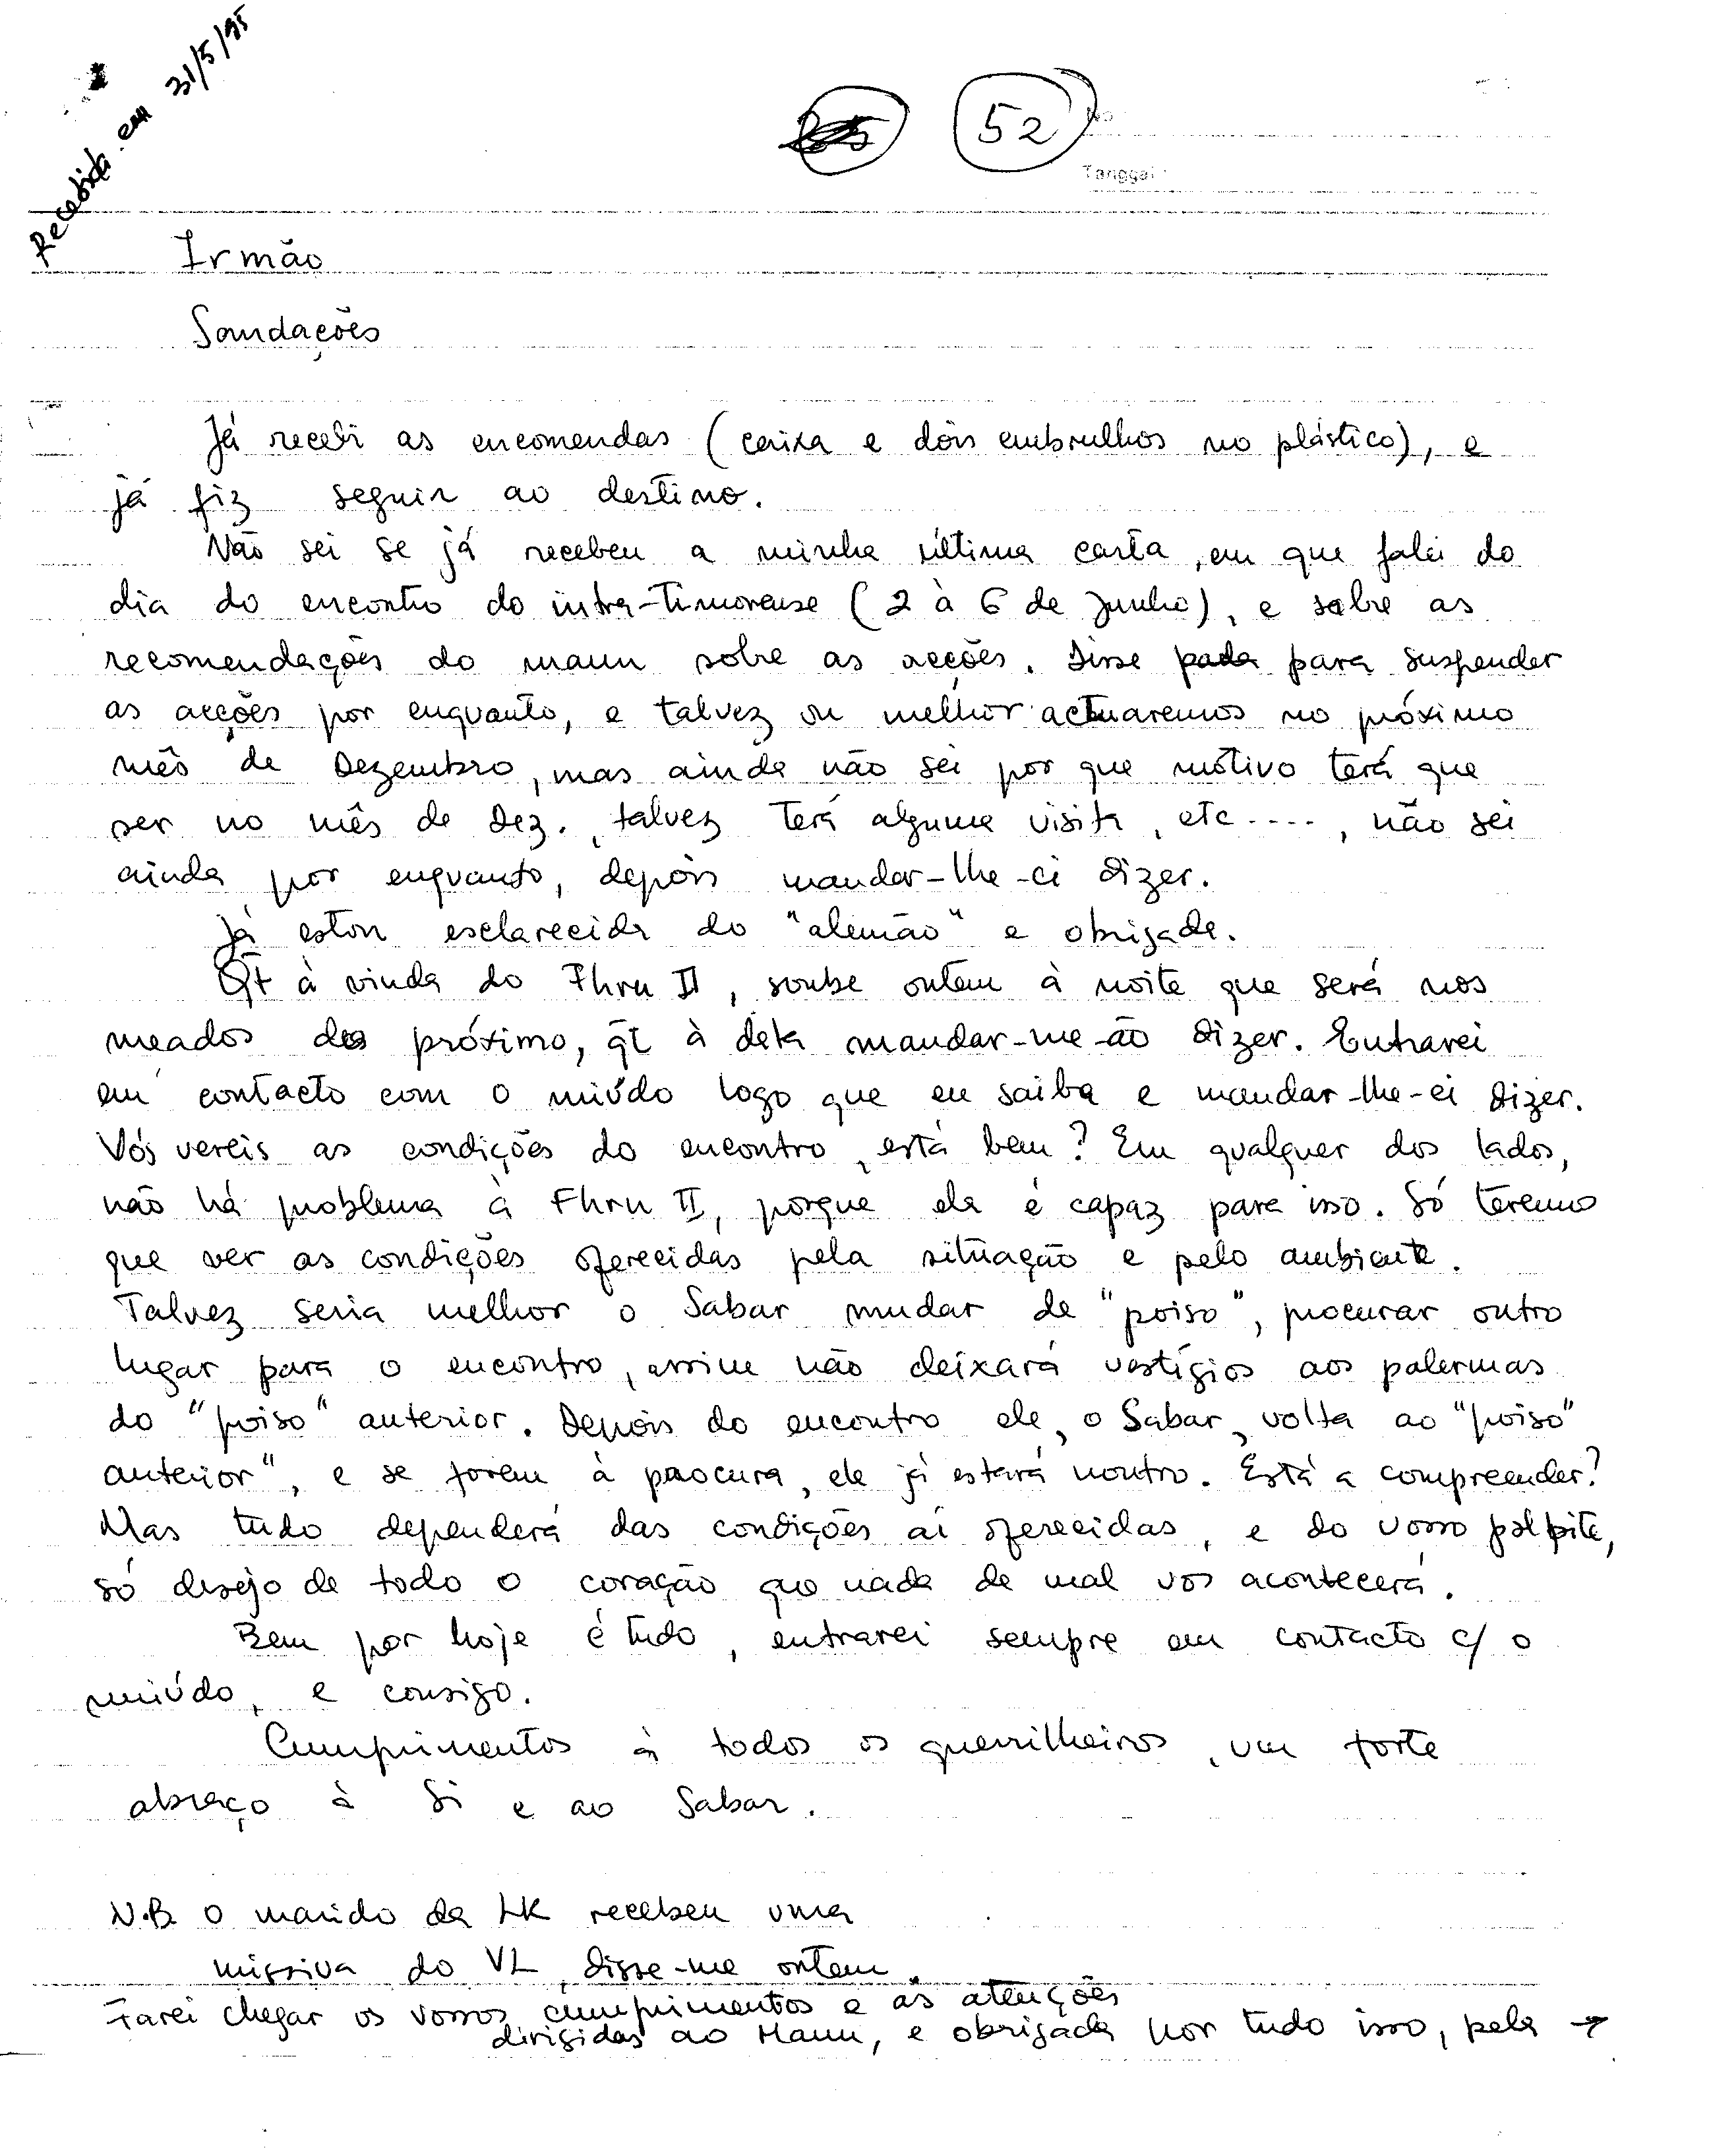 Recebida em 31/5/95
52
No
Tanggal :
Irmão
Saudações
Já recebi as encomendas (caixa e dois embrulhos no plástico), e
já fiz seguir ao destino.
Não sei se já recebeu a minha última carta, em que falei do
dia do encontro do intra-Timorense (2 à 6 de Junho), e sobre as
recomendações do maun sobre as acções. Disse para suspender
as acções por enquanto, e talvez ou melhor actuaremos no próximo
mês de Dezembro, mas ainda não sei por que motivo terá que
ser no mês de Dez., talvez terá alguma visita, etc...., não sei
ainda por enquanto, depois mandar-lhe-ei dizer.
Já estou esclarecida do "alemão" e obrigada.
Qt à vinda do Fhru II, soube ontem à noite que será nos
meados do próximo, qt à data mandar-me-ão dizer. Entrarei
em contacto com o miúdo logo que eu saiba e mandar-lhe-ei dizer.
Vós vereis as condições do encontro, está bem? Em qualquer dos lados,
não há problema à Fhru II, porque ela é capaz para isso. Só teremo
que ver as condições oferecidas pela situação e pelo ambiente.
Talvez seria melhor o Sabar mudar de "poiso", procurar outro
lugar para o encontro, assim não deixará vestígios aos palermas
do "poiso" anterior. Depois do encontro ele, o Sabar, volta ao "poiso"
anterior", e se forem à procura, ele já estará noutro. Está a compreender?
Mas tudo dependerá das condições aí oferecidas, e do vosso palpite,
só desejo de todo o coração que nada de mal vos acontecerá.
Bem por hoje é tudo, entrarei sempre em contacto c/ o
miúdo, e consigo.
Cumprimentos à todos os guerrilheiros, um forte
abraço à Si e ao Sabar.
N.B. O marido da LK recebeu uma
missiva do VL, disse-me ontem.
Farei chegar os vossos cumprimentos e as atenções
dirigidas ao Maun, e obrigada por tudo isso, pela →